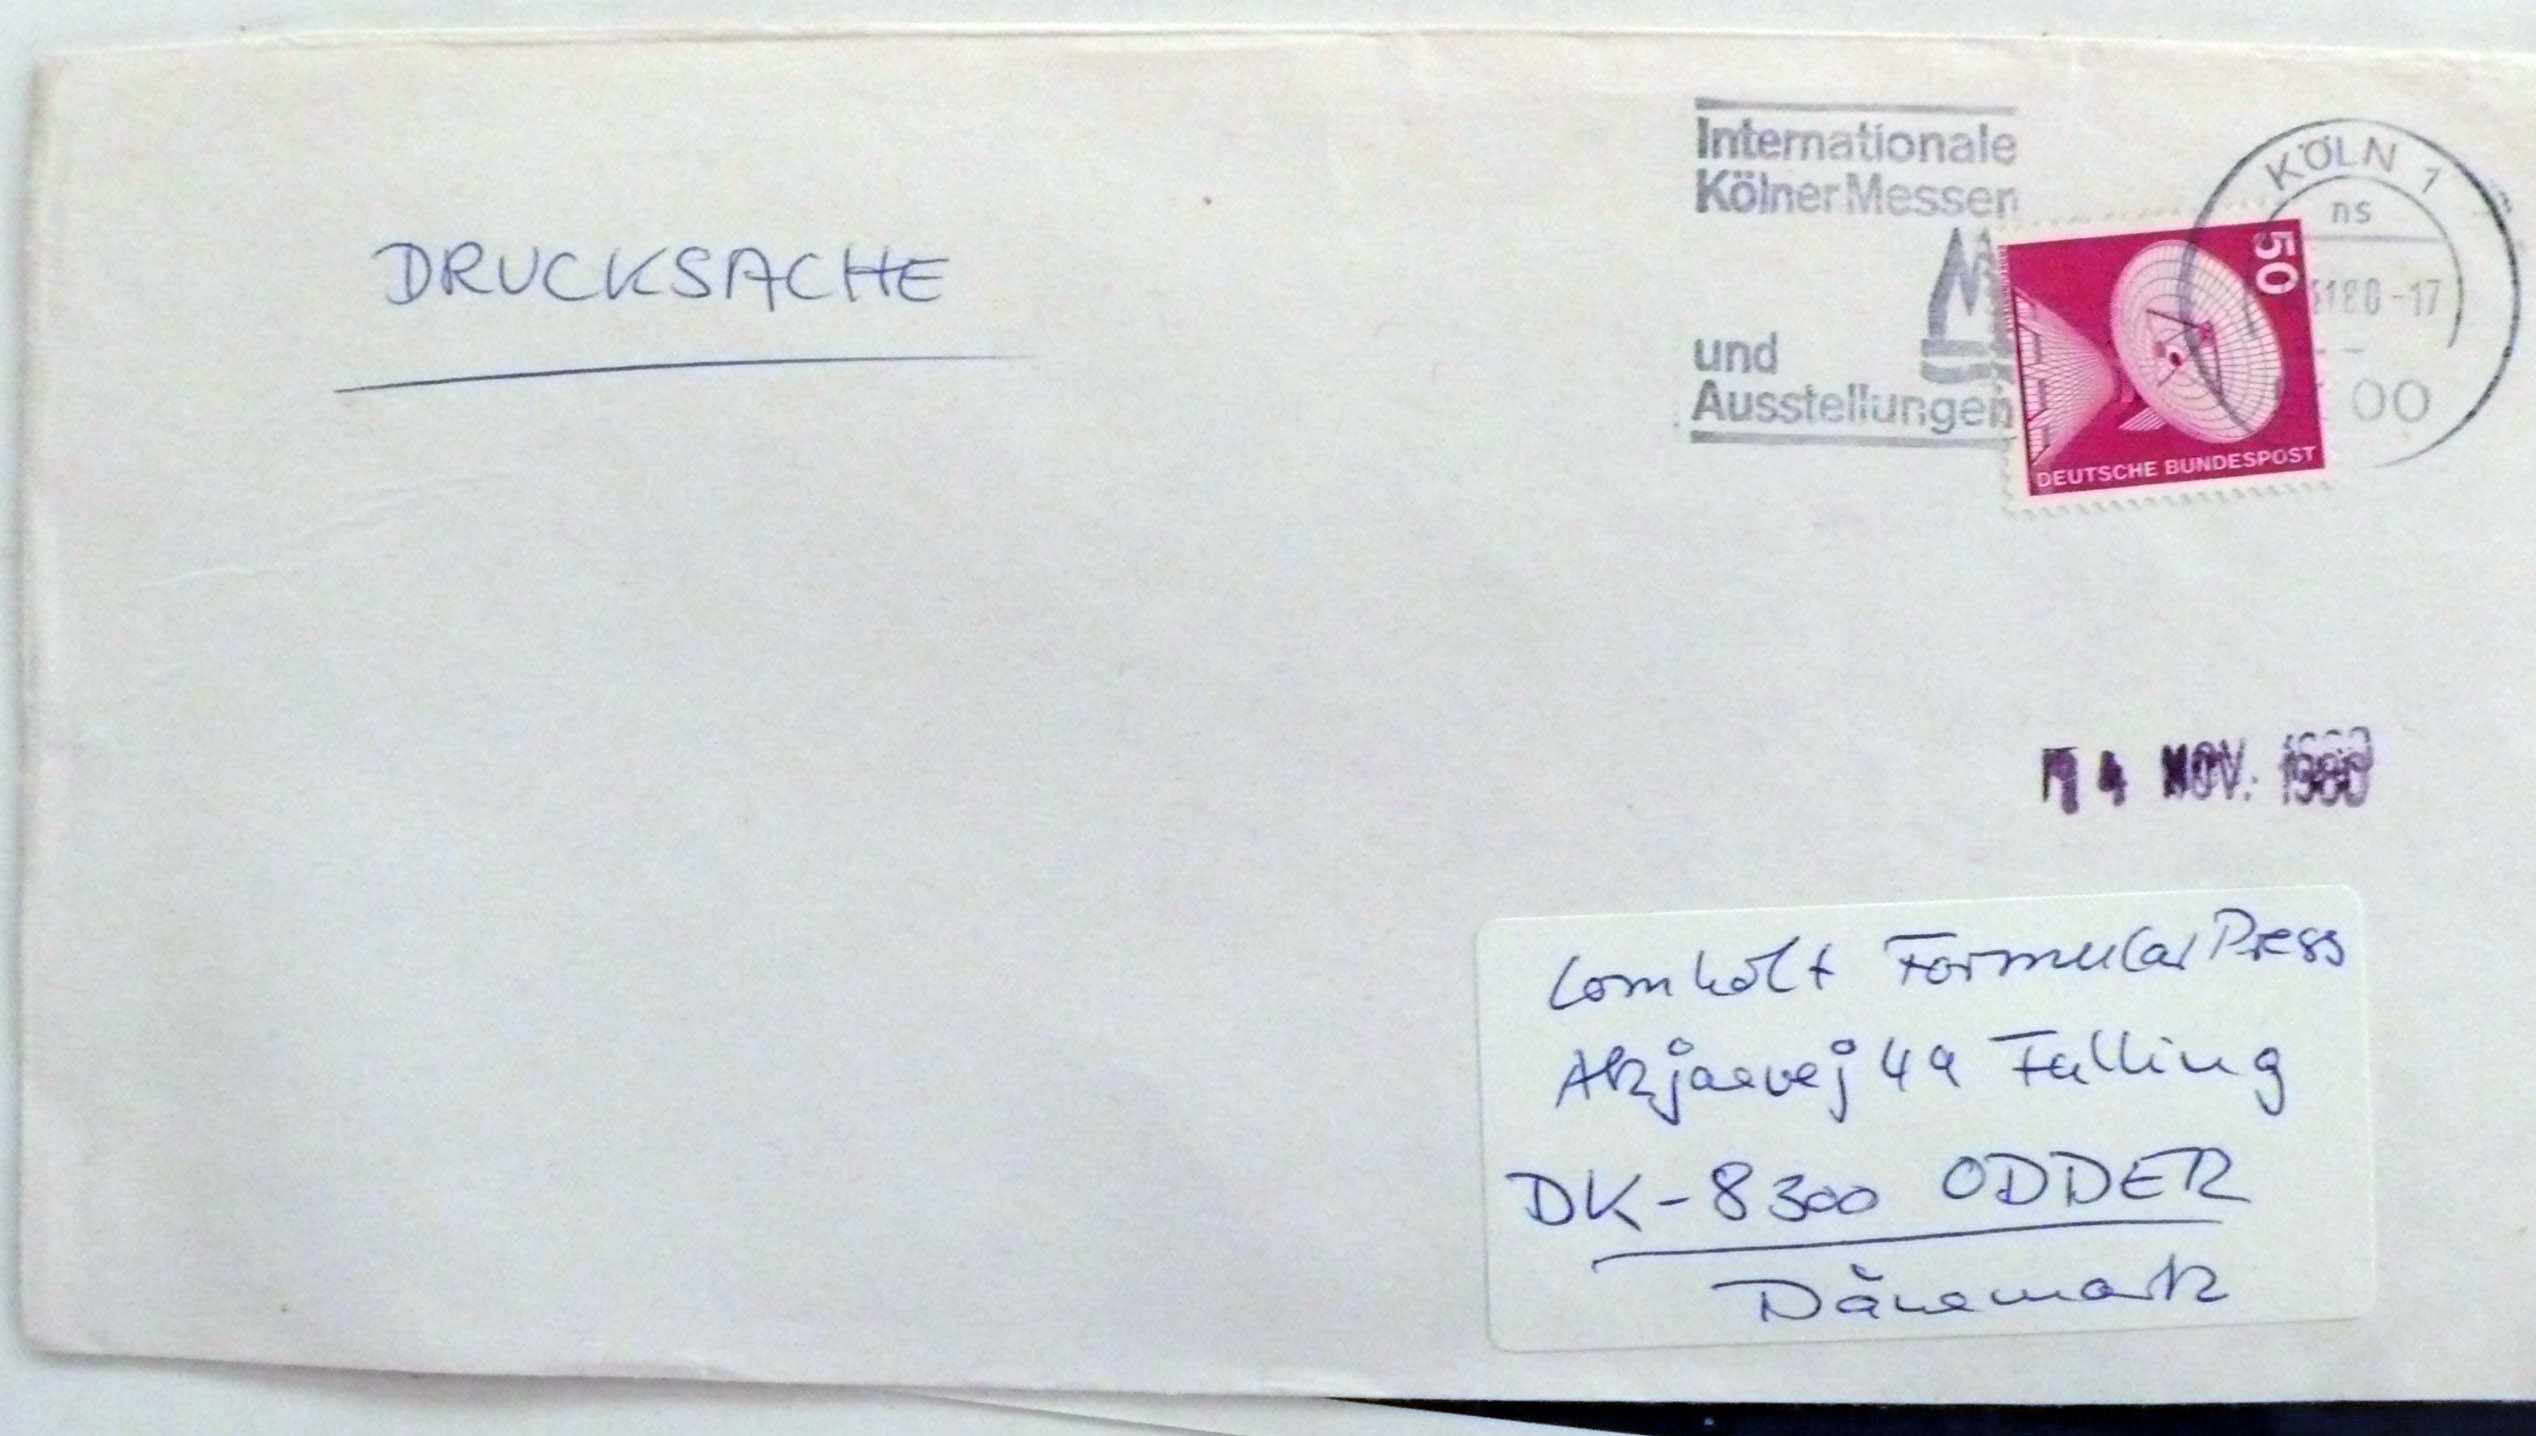 Internationale
Kölner Messen
und
Ausstellungen
KÖLN 1
ns
80-17
00
50
DEUTSCHE BUNDESPOST
DRUCKSACHE
4 NOV. 1980
Lomholt Formular Press
Akjaevej 49 Falling
DK-8300 ODDER
Dänemark